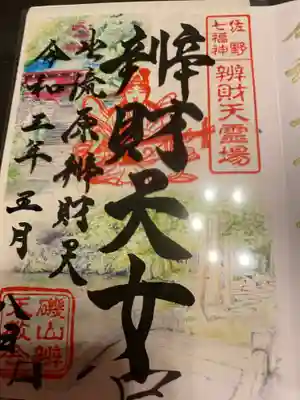 佐野七福神
辨財天霊場
辨財天女
出流原辨財天
令和二年五月八日
磯山辨